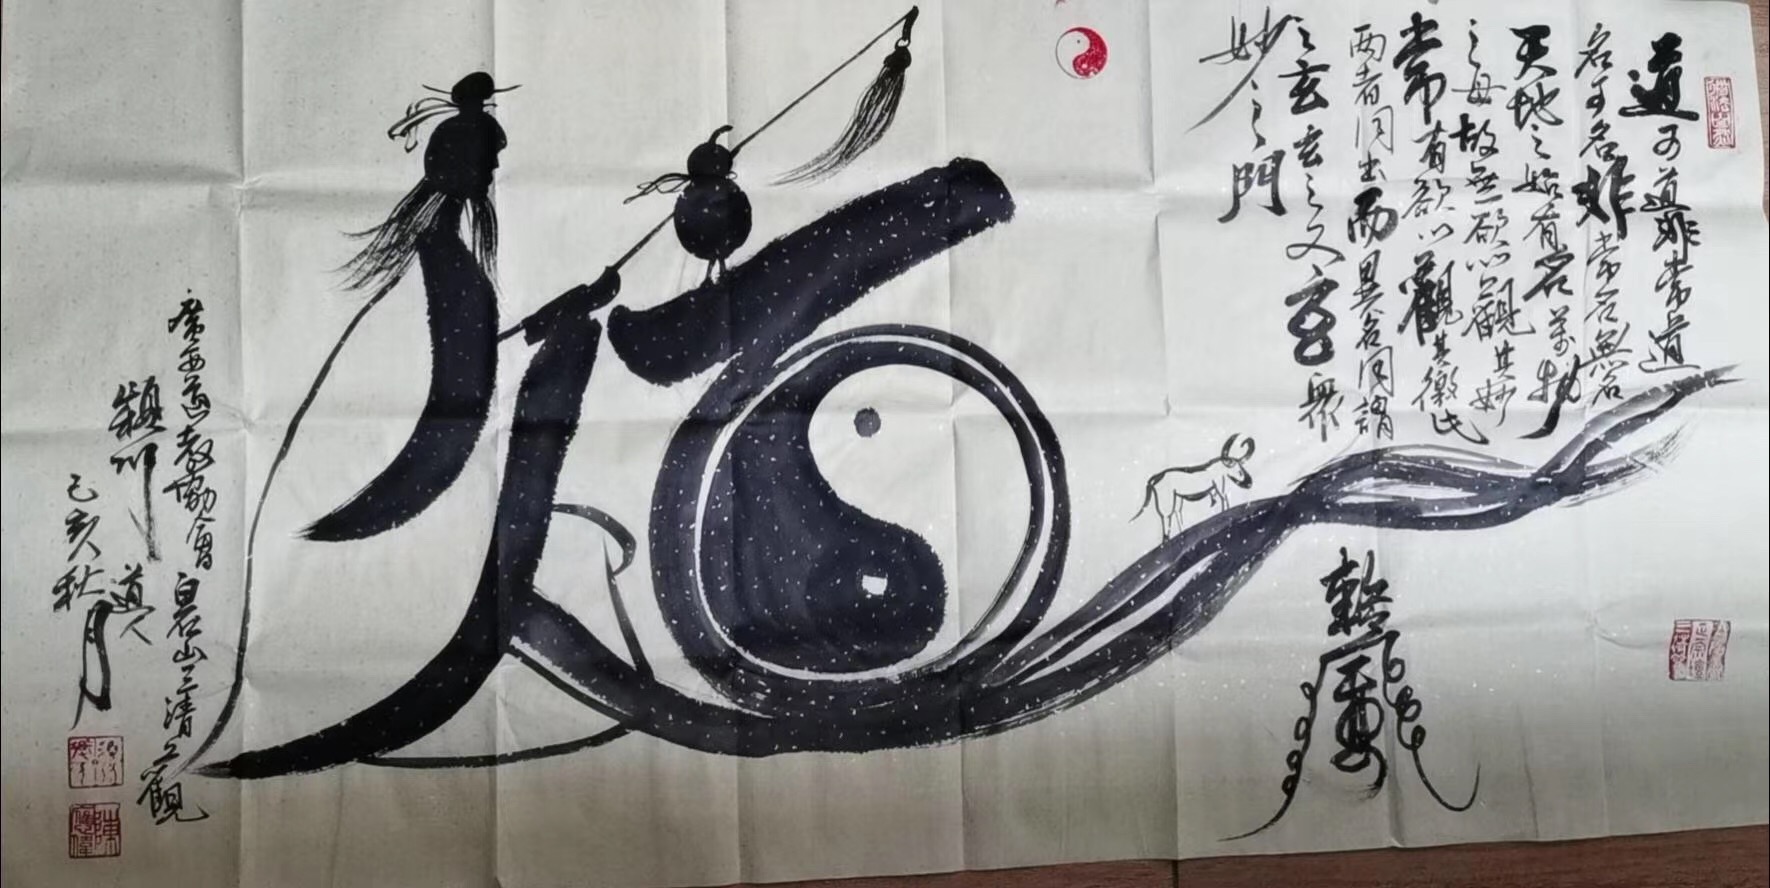 道可道非常道
名可名非常名無名
天地之始有名萬物
之母故無欲以觀其妙
常有欲以觀其徼此
两者同出而異名同謂
之玄玄之又玄衆
妙之門
道
廣西道教協會白石山三清觀
穎川道人
己亥秋月